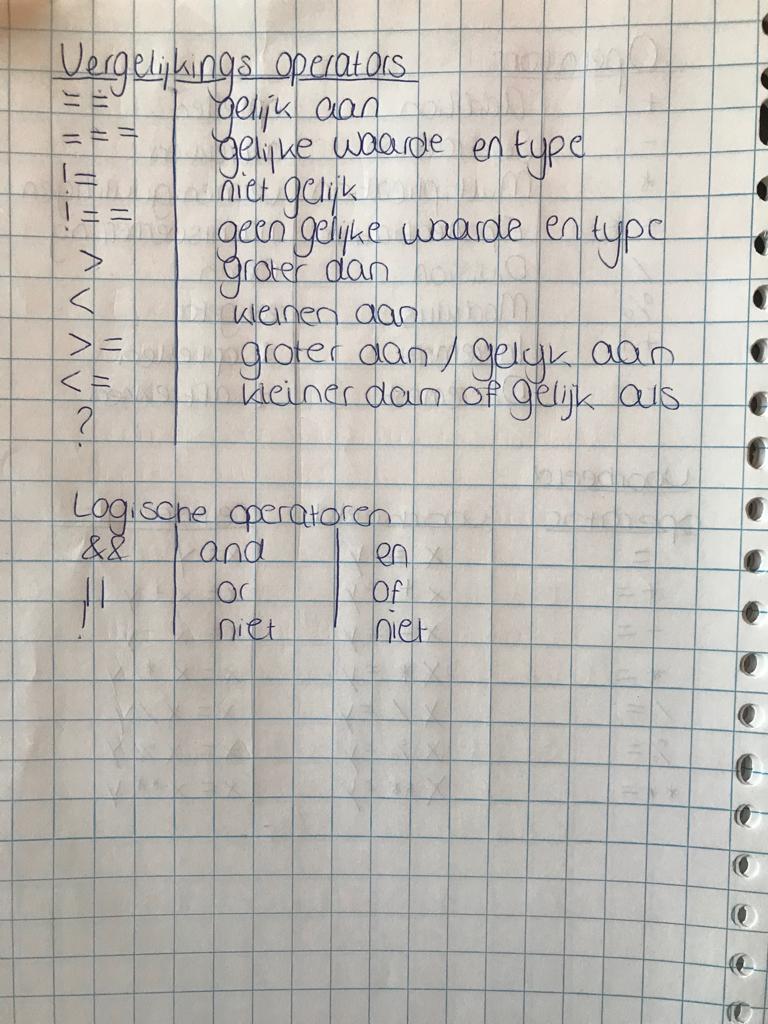 Vergelijkings operators
== gelijk aan
=== gelijke waarde en type
!= niet gelijk
!== geen gelijke waarde en type
> groter dan
< kleinen aan
>= groter dan / gelijk aan
<= kleiner dan of gelijk als
?
Logische operatoren
&& and en
|| or of
! niet niet